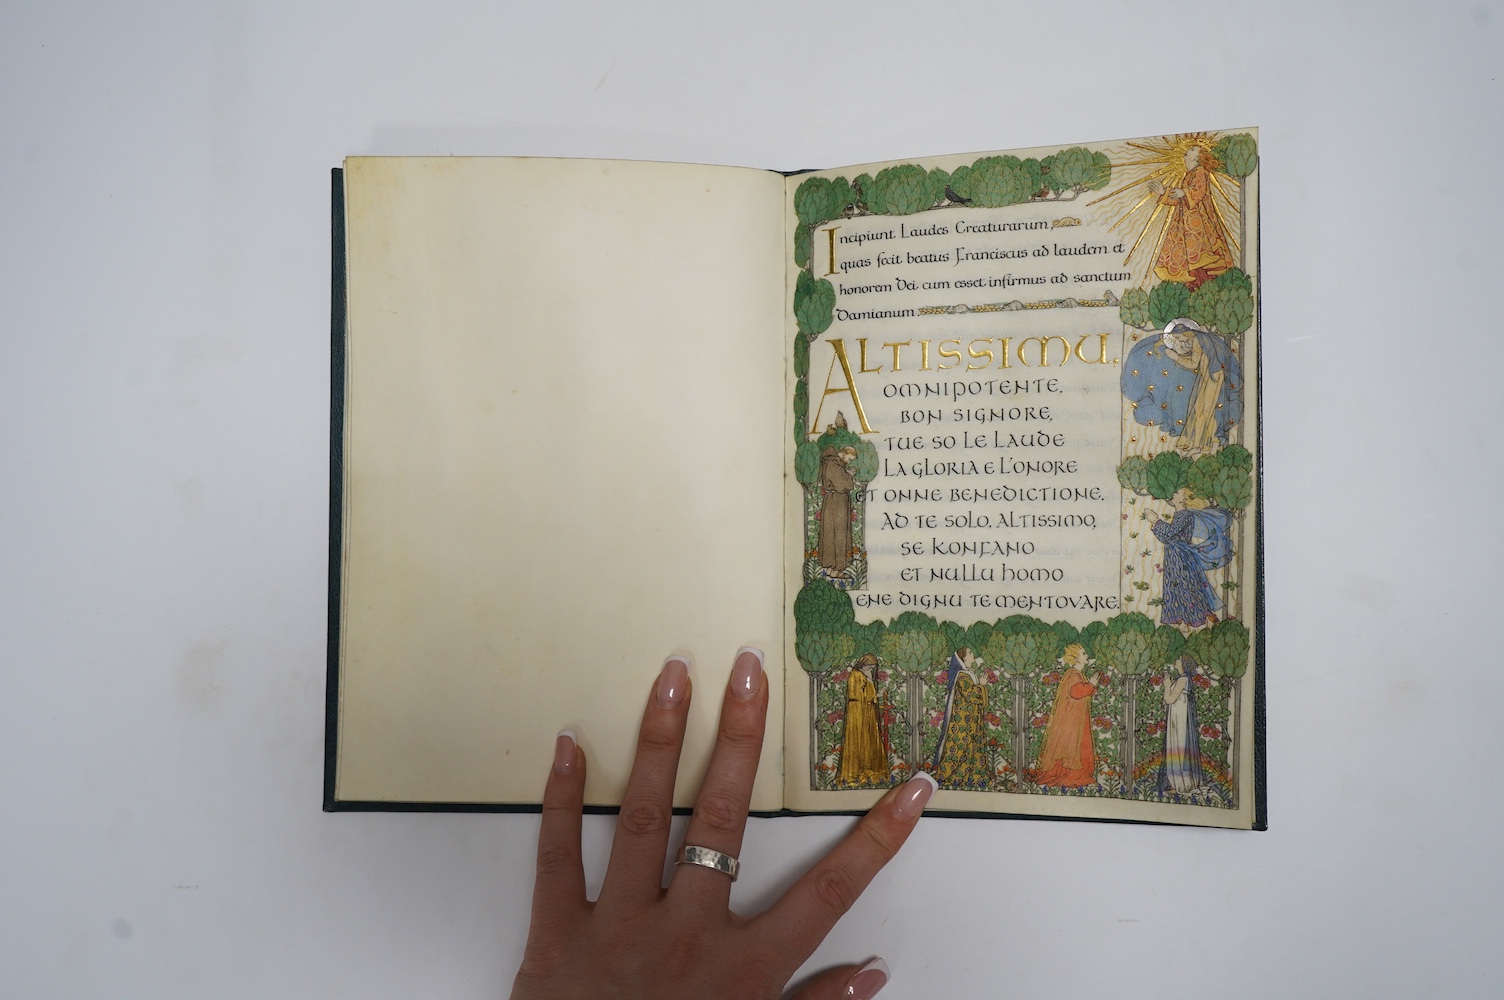 Incipiunt Laudes Creaturarum,
quas fecit beatus Franciscus ad laudem et
honorem Dei cum esset infirmus ad sanctum
Damianum.
ALTISSIMU,
OMNIPOTENTE,
BON SIGNORE,
TUE SO LE LAUDE
LA GLORIA E L'ONORE
ET ONNE BENEDICTIONE.
AD TE SOLO, ALTISSIMO,
SE KONFANO
ET NULLU HOMO
ENE DIGNU TE MENTOVARE.